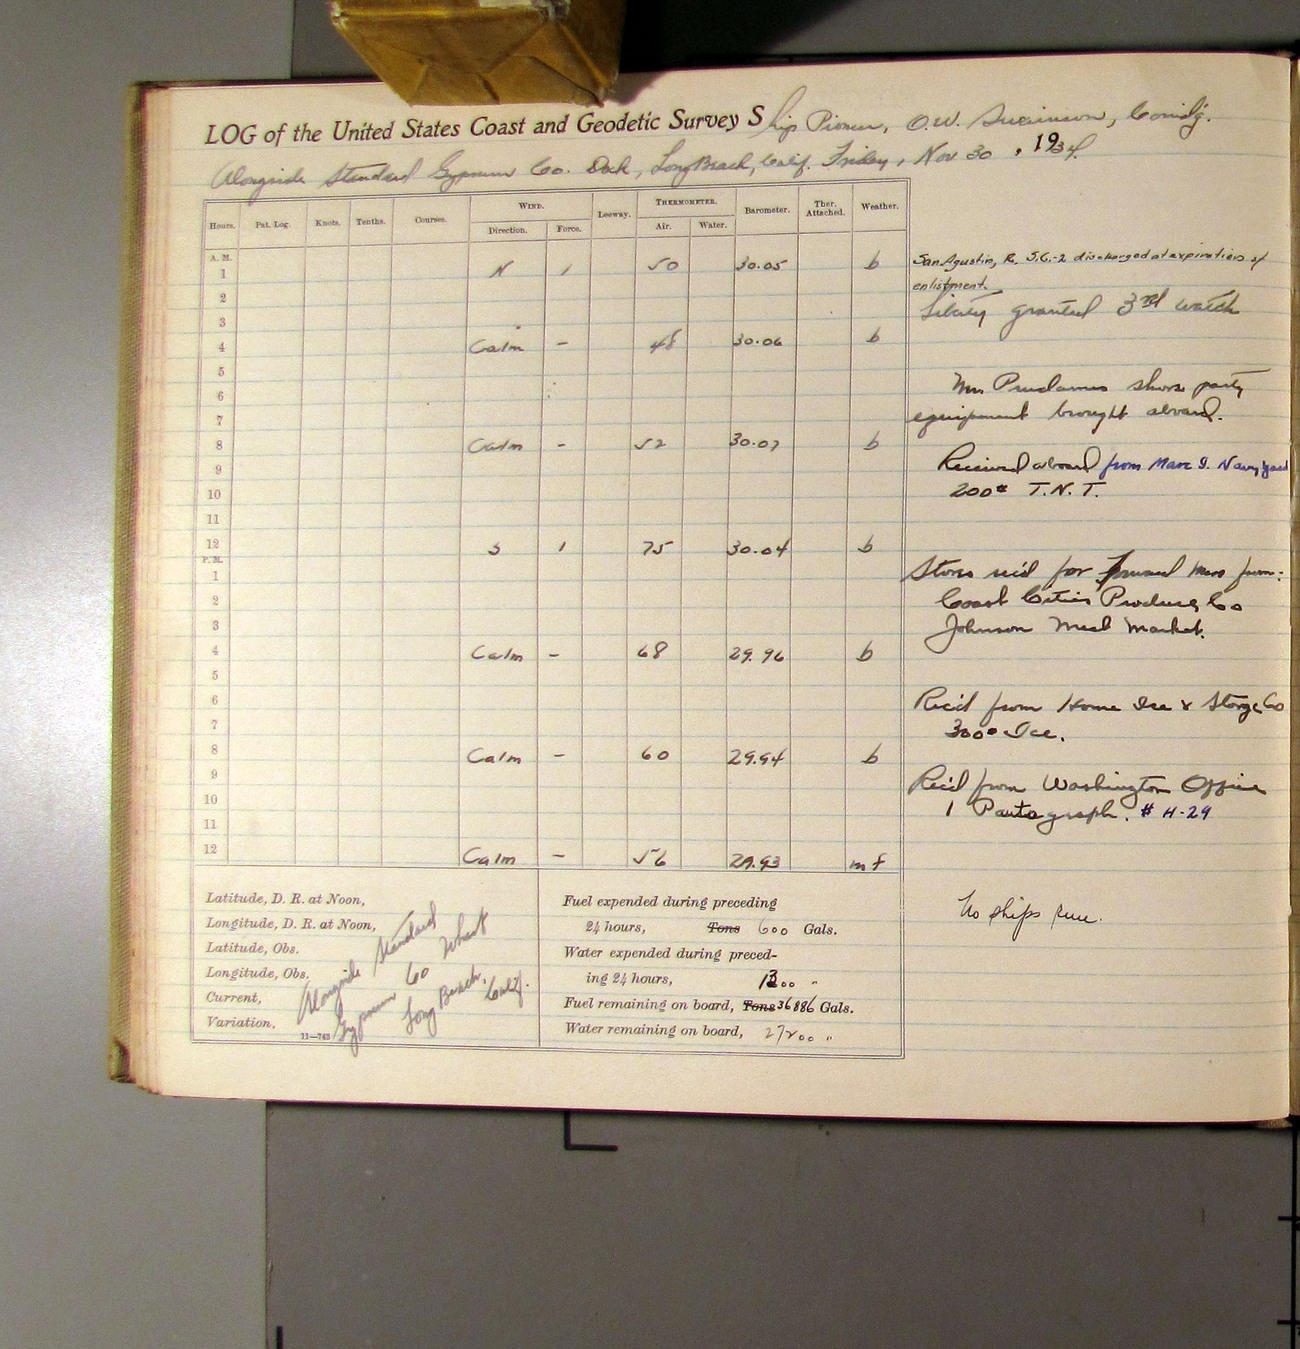 LOG of the United States Coast and Geodetic Survey Ship Pioneer, O.W. Swainson, Comdg.
Alongside Standard Gypsum Co. Dock, Long Beach, Calif. Friday, Nov 30, 1934
Hours. Pat. Log. Knots. Tenths. Courses. WIND. Leeway. THERMOMETER. Barometer. Ther. Attached. Weather.
Direction. Force. Air. Water.
A. M.
1 N 1 50 30.05 b
2
3
4 Calm - 48 30.06 b
5
6
7
8 Calm - 52 30.07 b
9
10
11
12 S 1 75 30.04 b
P. M.
1
2
3
4 Calm - 68 29.96 b
5
6
7
8 Calm - 60 29.94 b
9
10
11
12 Calm - 56 29.93 m f
San Agustin, R. S.C.-2 discharged at expiration of
enlistment.
Liberty granted 3rd watch
Mr. shore party
equipment brought aboard.
Received aboard from Mare I. Navy Yard
200# T.N.T.
Stores rec'd for Forward Mess from:
Coast Cities Produce Co
Johnson Meat Market.
Rec'd from Home Ice & Storge Co
300# Ice.
Rec'd from Washington Office
1 Pantograph. # H-29
No ships run.
Latitude, D. R. at Noon,
Longitude, D. R. at Noon,
Latitude, Obs.
Longitude, Obs.
Current,
Variation,
11—743
Alongside Standard
Gypsum Co Wharf
Long Beach, Calif.
Fuel expended during preceding
24 hours, Tons 600 Gals.
Water expended during preced-
ing 24 hours, 1300 "
Fuel remaining on board, Tons 36886 Gals.
Water remaining on board, 27200 "